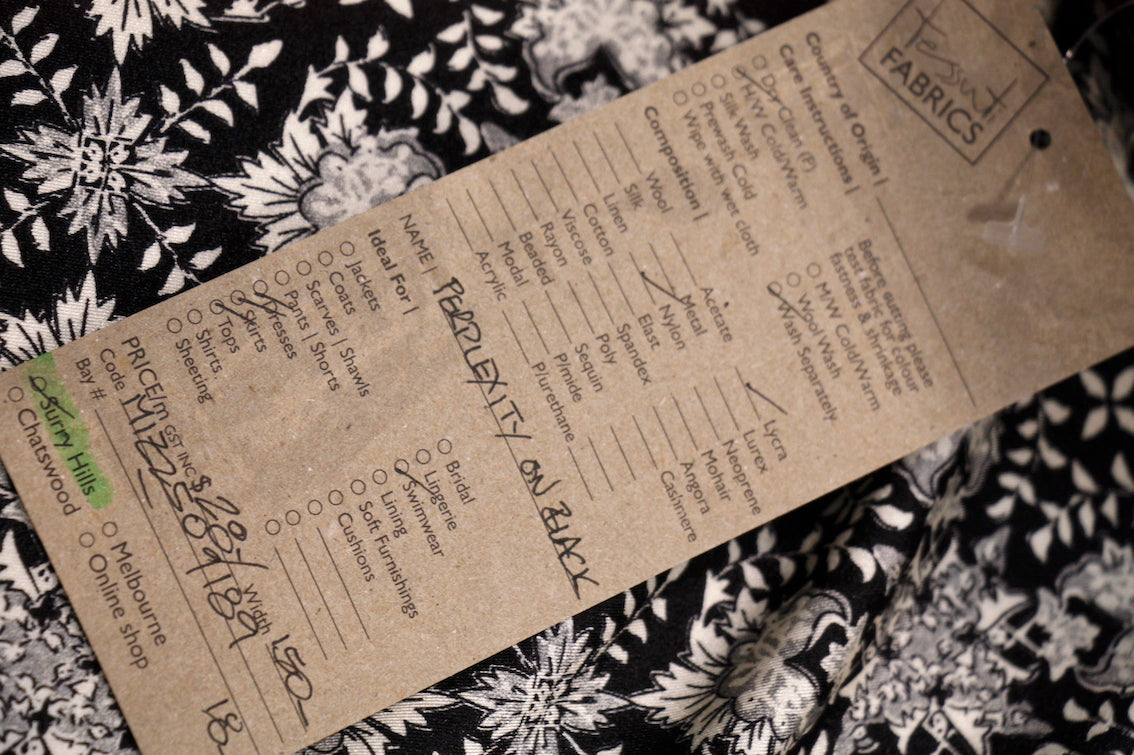 Tessuti
FABRICS
Country of Origin |
Care Instructions |
Dry Clean (P)
H/W Cold/Warm
Silk Wash
Prewash Cold
Wipe with wet cloth
Before cutting please
test fabric for colour
fastness & shrinkage
M/W Cold/Warm
Wool Wash
Wash Separately
Composition |
Wool
Silk
Linen
Cotton
Viscose
Rayon
Beaded
Modal
Acrylic
Acetate
Metal
Nylon
Elast
Spandex
Poly
Sequin
P/mide
P/urethane
Lycra
Lurex
Neoprene
Mohair
Angora
Cashmere
NAME | PERPLEXITY ON BLACK
Ideal For |
Jackets
Coats
Scarves | Shawls
Pants | Shorts
Dresses
Skirts
Tops
Shirts
Sheeting
Bridal
Lingerie
Swimwear
Lining
Soft Furnishings
Cushions
PRICE/m GST INC $ Width 150
Code
Bay #
Surry Hills
Chatswood
Melbourne
Online shop